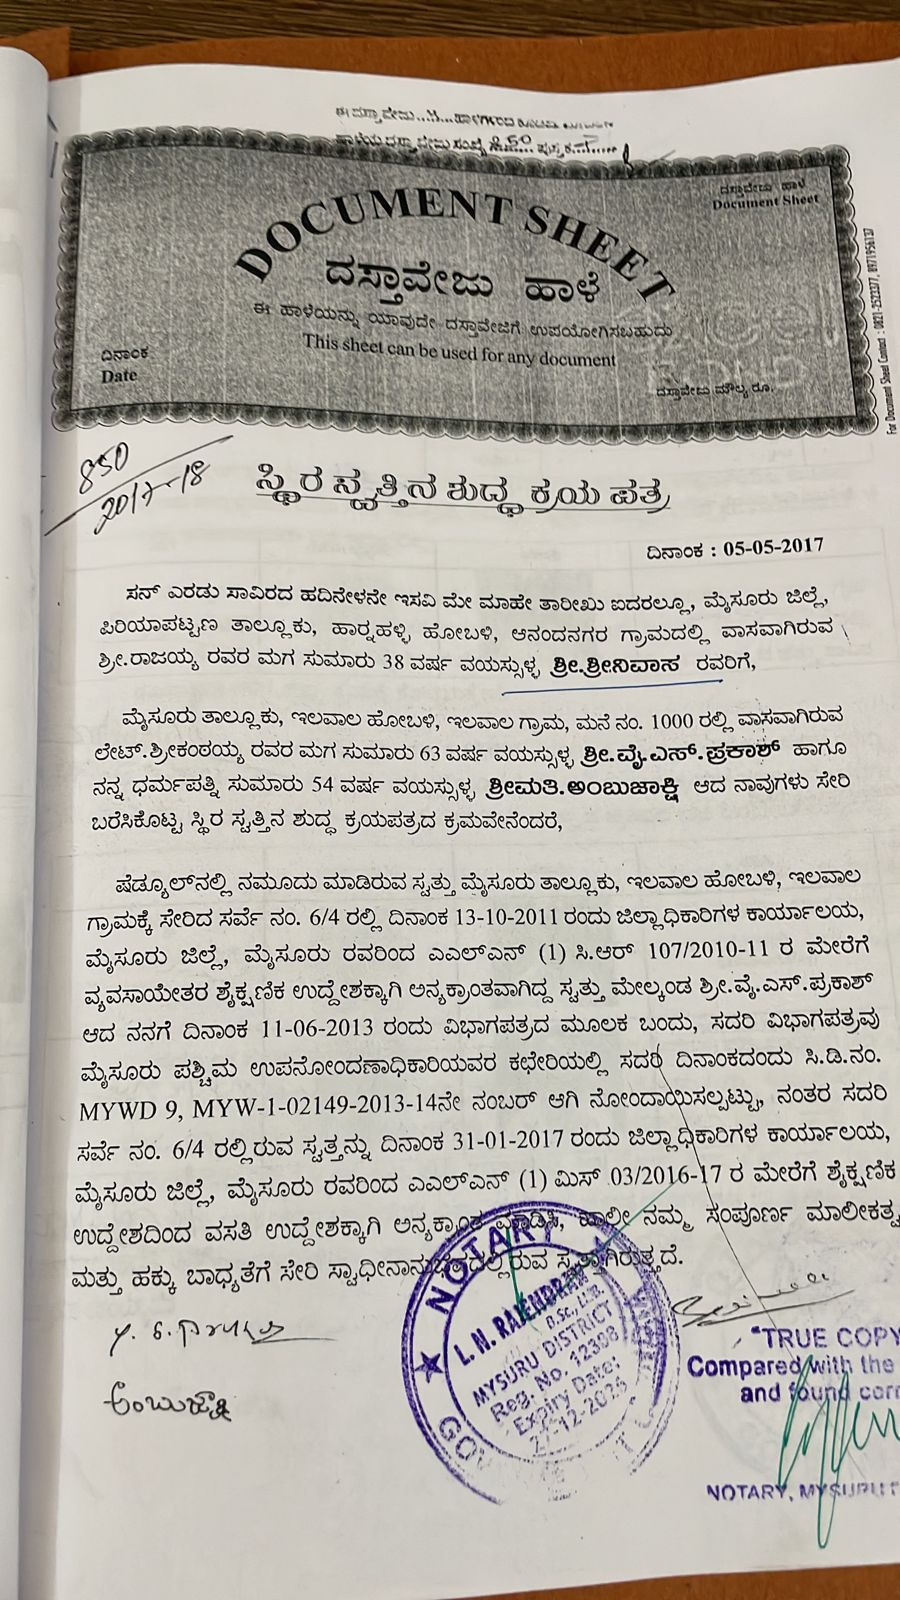 ಈ ದಸ್ತಾವೇಜು
ಹಾಳೆಯ ದಸ್ತಾವೇಜು ಸಂಖ್ಯೆ 850 ಪುಸ್ತಕ
DOCUMENT SHEET
ದಸ್ತಾವೇಜು ಹಾಳೆ
Document Sheet
ದಸ್ತಾವೇಜು ಹಾಳೆ
ಈ ಹಾಳೆಯನ್ನು ಯಾವುದೇ ದಸ್ತಾವೇಜಿಗೆ ಉಪಯೋಗಿಸಬಹುದು
This sheet can be used for any document
ದಿನಾಂಕ
Date
ದಸ್ತಾವೇಜು ಮೌಲ್ಯ ರೂ.
For Document Sheet Contact : 0821-2523377,
850
2017-18
ಸ್ಥಿರ ಸ್ವತ್ತಿನ ಶುದ್ಧ ಕ್ರಯ ಪತ್ರ
ದಿನಾಂಕ : 05-05-2017
ಸನ್ ಎರಡು ಸಾವಿರದ ಹದಿನೇಳನೇ ಇಸವಿ ಮೇ ಮಾಹೇ ತಾರೀಖು ಐದರಲ್ಲೂ, ಮೈಸೂರು ಜಿಲ್ಲೆ,
ಪಿರಿಯಾಪಟ್ಟಣ ತಾಲ್ಲೂಕು, ಹಾರ‍್ನಹಳ್ಳಿ ಹೋಬಳಿ, ಆನಂದನಗರ ಗ್ರಾಮದಲ್ಲಿ ವಾಸವಾಗಿರುವ
ಶ್ರೀ.ರಾಜಯ್ಯ ರವರ ಮಗ ಸುಮಾರು 38 ವರ್ಷ ವಯಸ್ಸುಳ್ಳ ಶ್ರೀ.ಶ್ರೀನಿವಾಸ ರವರಿಗೆ,
ಮೈಸೂರು ತಾಲ್ಲೂಕು, ಇಲವಾಲ ಹೋಬಳಿ, ಇಲವಾಲ ಗ್ರಾಮ, ಮನೆ ನಂ. 1000 ರಲ್ಲಿ ವಾಸವಾಗಿರುವ
ಲೇಟ್.ಶ್ರೀಕಂಠಯ್ಯ ರವರ ಮಗ ಸುಮಾರು 63 ವರ್ಷ ವಯಸ್ಸುಳ್ಳ ಶ್ರೀ.ವೈ.ಎಸ್.ಪ್ರಕಾಶ್ ಹಾಗೂ
ನನ್ನ ಧರ್ಮಪತ್ನಿ ಸುಮಾರು 54 ವರ್ಷ ವಯಸ್ಸುಳ್ಳ ಶ್ರೀಮತಿ.ಅಂಬುಜಾಕ್ಷಿ ಆದ ನಾವುಗಳು ಸೇರಿ
ಬರೆಸಿಕೊಟ್ಟ ಸ್ಥಿರ ಸ್ವತ್ತಿನ ಶುದ್ಧ ಕ್ರಯಪತ್ರದ ಕ್ರಮವೇನೆಂದರೆ,
ಷೆಡ್ಯೂಲ್‌ನಲ್ಲಿ ನಮೂದು ಮಾಡಿರುವ ಸ್ವತ್ತು ಮೈಸೂರು ತಾಲ್ಲೂಕು, ಇಲವಾಲ ಹೋಬಳಿ, ಇಲವಾಲ
ಗ್ರಾಮಕ್ಕೆ ಸೇರಿದ ಸರ್ವೆ ನಂ. 6/4 ರಲ್ಲಿ ದಿನಾಂಕ 13-10-2011 ರಂದು ಜಿಲ್ಲಾಧಿಕಾರಿಗಳ ಕಾರ್ಯಾಲಯ,
ಮೈಸೂರು ಜಿಲ್ಲೆ, ಮೈಸೂರು ರವರಿಂದ ಎಎಲ್ಎನ್ (1) ಸಿ.ಆರ್ 107/2010-11 ರ ಮೇರೆಗೆ
ವ್ಯವಸಾಯೇತರ ಶೈಕ್ಷಣಿಕ ಉದ್ದೇಶಕ್ಕಾಗಿ ಅನ್ಯಕ್ರಾಂತವಾಗಿದ್ದ ಸ್ವತ್ತು ಮೇಲ್ಕಂಡ ಶ್ರೀ.ವೈ.ಎಸ್.ಪ್ರಕಾಶ್
ಆದ ನನಗೆ ದಿನಾಂಕ 11-06-2013 ರಂದು ವಿಭಾಗಪತ್ರದ ಮೂಲಕ ಬಂದು, ಸದರಿ ವಿಭಾಗಪತ್ರವು
ಮೈಸೂರು ಪಶ್ಚಿಮ ಉಪನೋಂದಣಾಧಿಕಾರಿಯವರ ಕಛೇರಿಯಲ್ಲಿ ಸದರಿ ದಿನಾಂಕದಂದು ಸಿ.ಡಿ.ನಂ.
MYWD 9, MYW-1-02149-2013-14ನೇ ನಂಬರ್ ಆಗಿ ನೋಂದಾಯಿಸಲ್ಪಟ್ಟು, ನಂತರ ಸದರಿ
ಸರ್ವೆ ನಂ. 6/4 ರಲ್ಲಿರುವ ಸ್ವತ್ತನ್ನು ದಿನಾಂಕ 31-01-2017 ರಂದು ಜಿಲ್ಲಾಧಿಕಾರಿಗಳ ಕಾರ್ಯಾಲಯ,
ಮೈಸೂರು ಜಿಲ್ಲೆ, ಮೈಸೂರು ರವರಿಂದ ಎಎಲ್ಎನ್ (1) ಮಿಸ್ 03/2016-17 ರ ಮೇರೆಗೆ ಶೈಕ್ಷಣಿಕ
ಉದ್ದೇಶದಿಂದ ವಸತಿ ಉದ್ದೇಶಕ್ಕಾಗಿ ಅನ್ಯಕ್ರಾಂತ ಮಾಡಿಸಿ, ಹಾಲೀ ನಮ್ಮ ಸಂಪೂರ್ಣ ಮಾಲೀಕತ್ವ
ಮತ್ತು ಹಕ್ಕು ಬಾಧ್ಯತೆಗೆ ಸೇರಿ ಸ್ವಾಧೀನಾನುಭವದಲ್ಲಿರುವ ಸ್ವತ್ತಾಗಿರುತ್ತದೆ.
ಅಂಬುಜಾಕ್ಷಿ
NOTARY
L. N. RAJENDRA
B.Sc., LL.B.
MYSURU DISTRICT
Reg. No. 12398
Expiry Date:
"TRUE COPY
Compared with the
and found corr
NOTARY, MYSURU